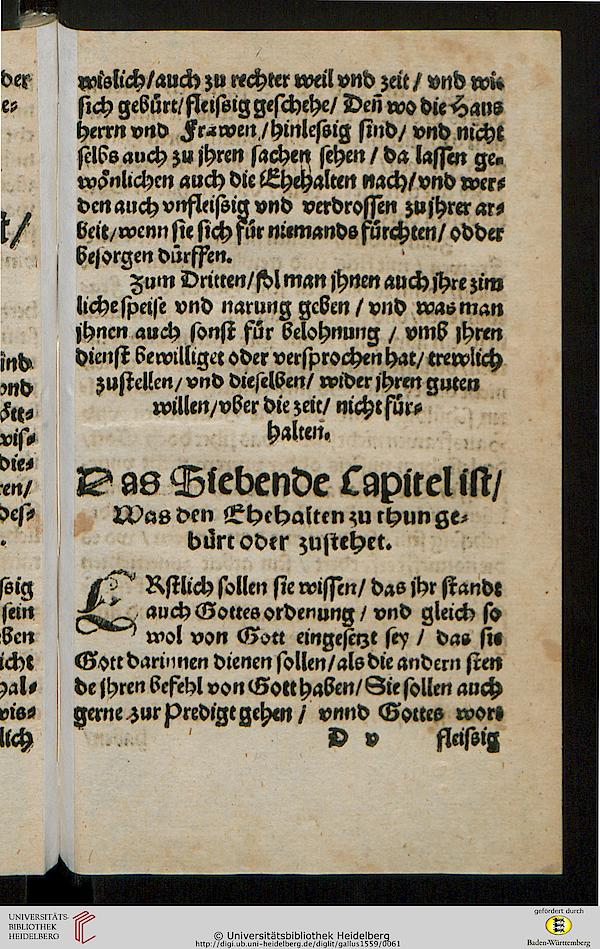 der
e⸗
t/
ind
vnd
ött⸗
wis⸗
die⸗
ren/
des⸗
.
ssig
sein
ben
icht
hal⸗
vis⸗
lich
wislich/auch zu rechter weil vnd zeit / vnd wie
sich gebürt/fleissig geschehe/ Deñ wo die Haus
herrn vnd Frawen/hinlessig sind/ vnd nicht
selbs auch zu jhren sachen sehen / da lassen ge⸗
wönlichen auch die Ehehalten nach/vnd wer⸗
den auch vnfleissig vnd verdrossen zu jhrer ar⸗
beit/wenn sie sich für niemands fürchten/ odder
besorgen dürffen.
Zum Dritten/sol man jhnen auch jhre zim
liche speise vnd narung geben / vnd was man
jhnen auch sonst für belohnung / vmb jhren
dienst bewilliget oder versprochen hat/ trewlich
zustellen/ vnd dieselben/ wider jhren guten
willen/vber die zeit/ nicht für⸗
halten.
Das Siebende Capitel ist/
Was den Ehehalten zu thun ge⸗
bürt oder zustehet.
ERstlich sollen sie wissen/ das jhr standt
auch Gottes ordenung / vnd gleich so
wol von Gott eingesetzt sey / das sie
Gott darinnen dienen sollen/als die andern sten
de jhren befehl von Gott haben/ Sie sollen auch
gerne zur Predigt gehen / vnnd Gottes wort
D v fleissig
UNIVERSITÄTS-
BIBLIOTHEK
HEIDELBERG
© Universitätsbibliothek Heidelberg
http://digi.ub.uni-heidelberg.de/diglit/gallus1559/0061
gefördert durch
Baden-Württemberg